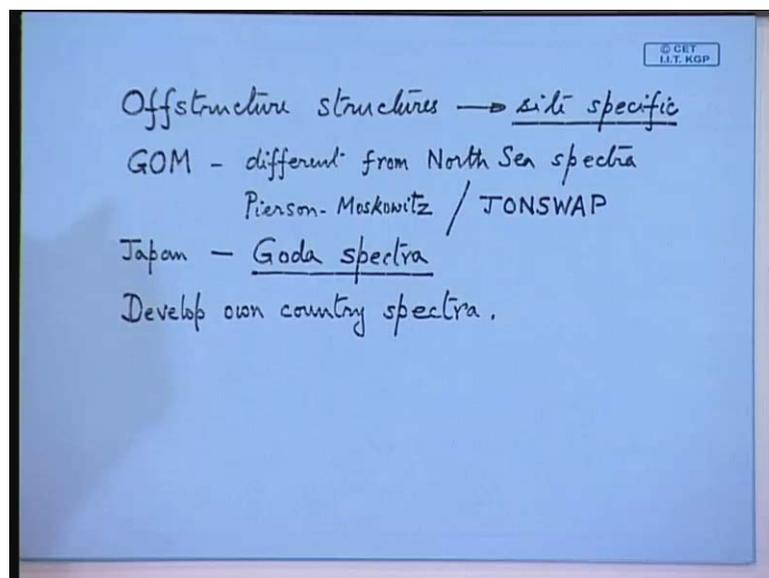 © CET
I.I.T. KGP
Offstructure structures → site specific
GOM - different from North Sea spectra
Pierson-Moskowitz / JONSWAP
Japan - Goda spectra
Develop own country spectra.